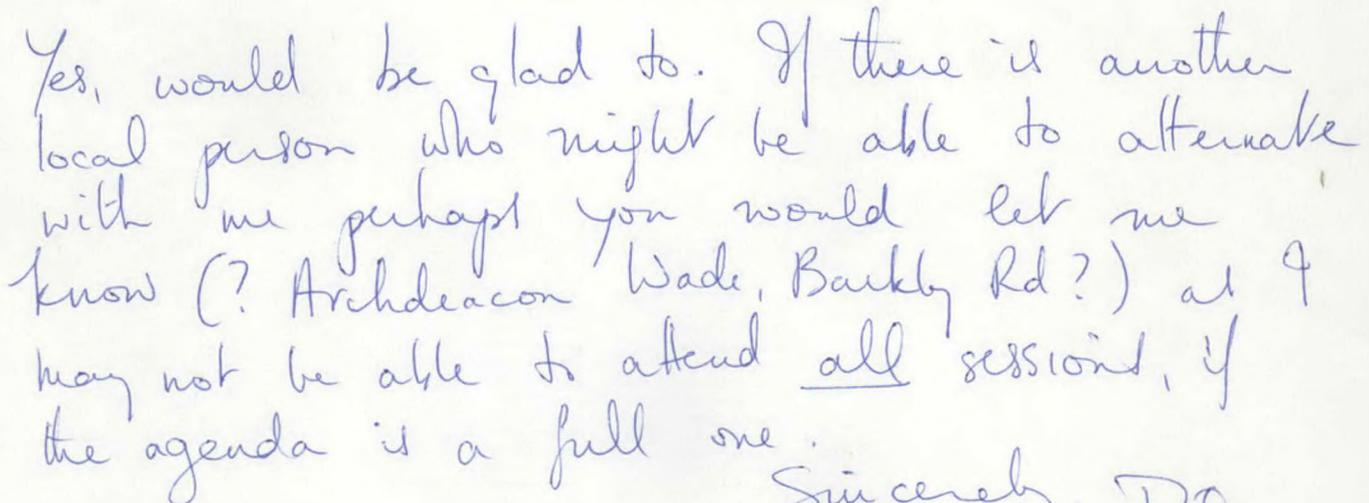 Yes, would be glad to. If there is another
local person who might be able to alternate
with me perhaps you would let me
know (? Archdeacon Wade, Barkly Rd?) as I
may not be able to attend all sessions, if
the agenda is a full one.
Sincerely